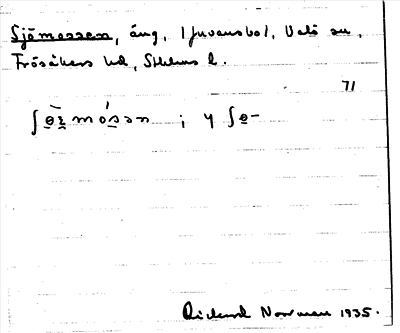 Sjömossen, äng, Tjuvansbol, Valö sn,
Frösåkers hd, Sthlms l.
71
ʃɵ̠̄z̠mós̠ən ; y ʃɵ̠-
Rickard Norrman 1935.